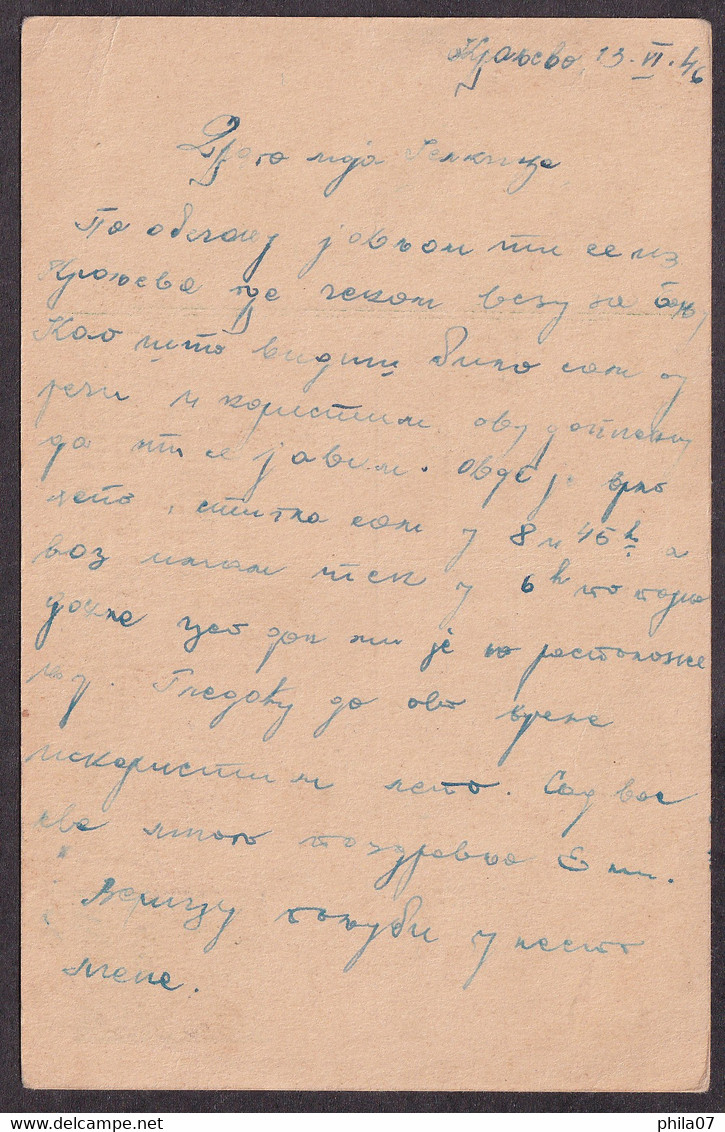 Краљево, 13. VI. 46
Драга моја
По обећању јављам ти се из
Краљева где чекам везу за
Као што видиш била сам од
речи и користим ову дописну
да ти се јавим. Овде је врло
лепо, стигла сам у 8 и 45 h а
воз имам тек у 6 h по подне
дакле цео дан ми је на расположе
њу. Гледаћу да ово време
искористим лепо. Сад вас
све много поздравља
пољуби у место
мене.
phila07